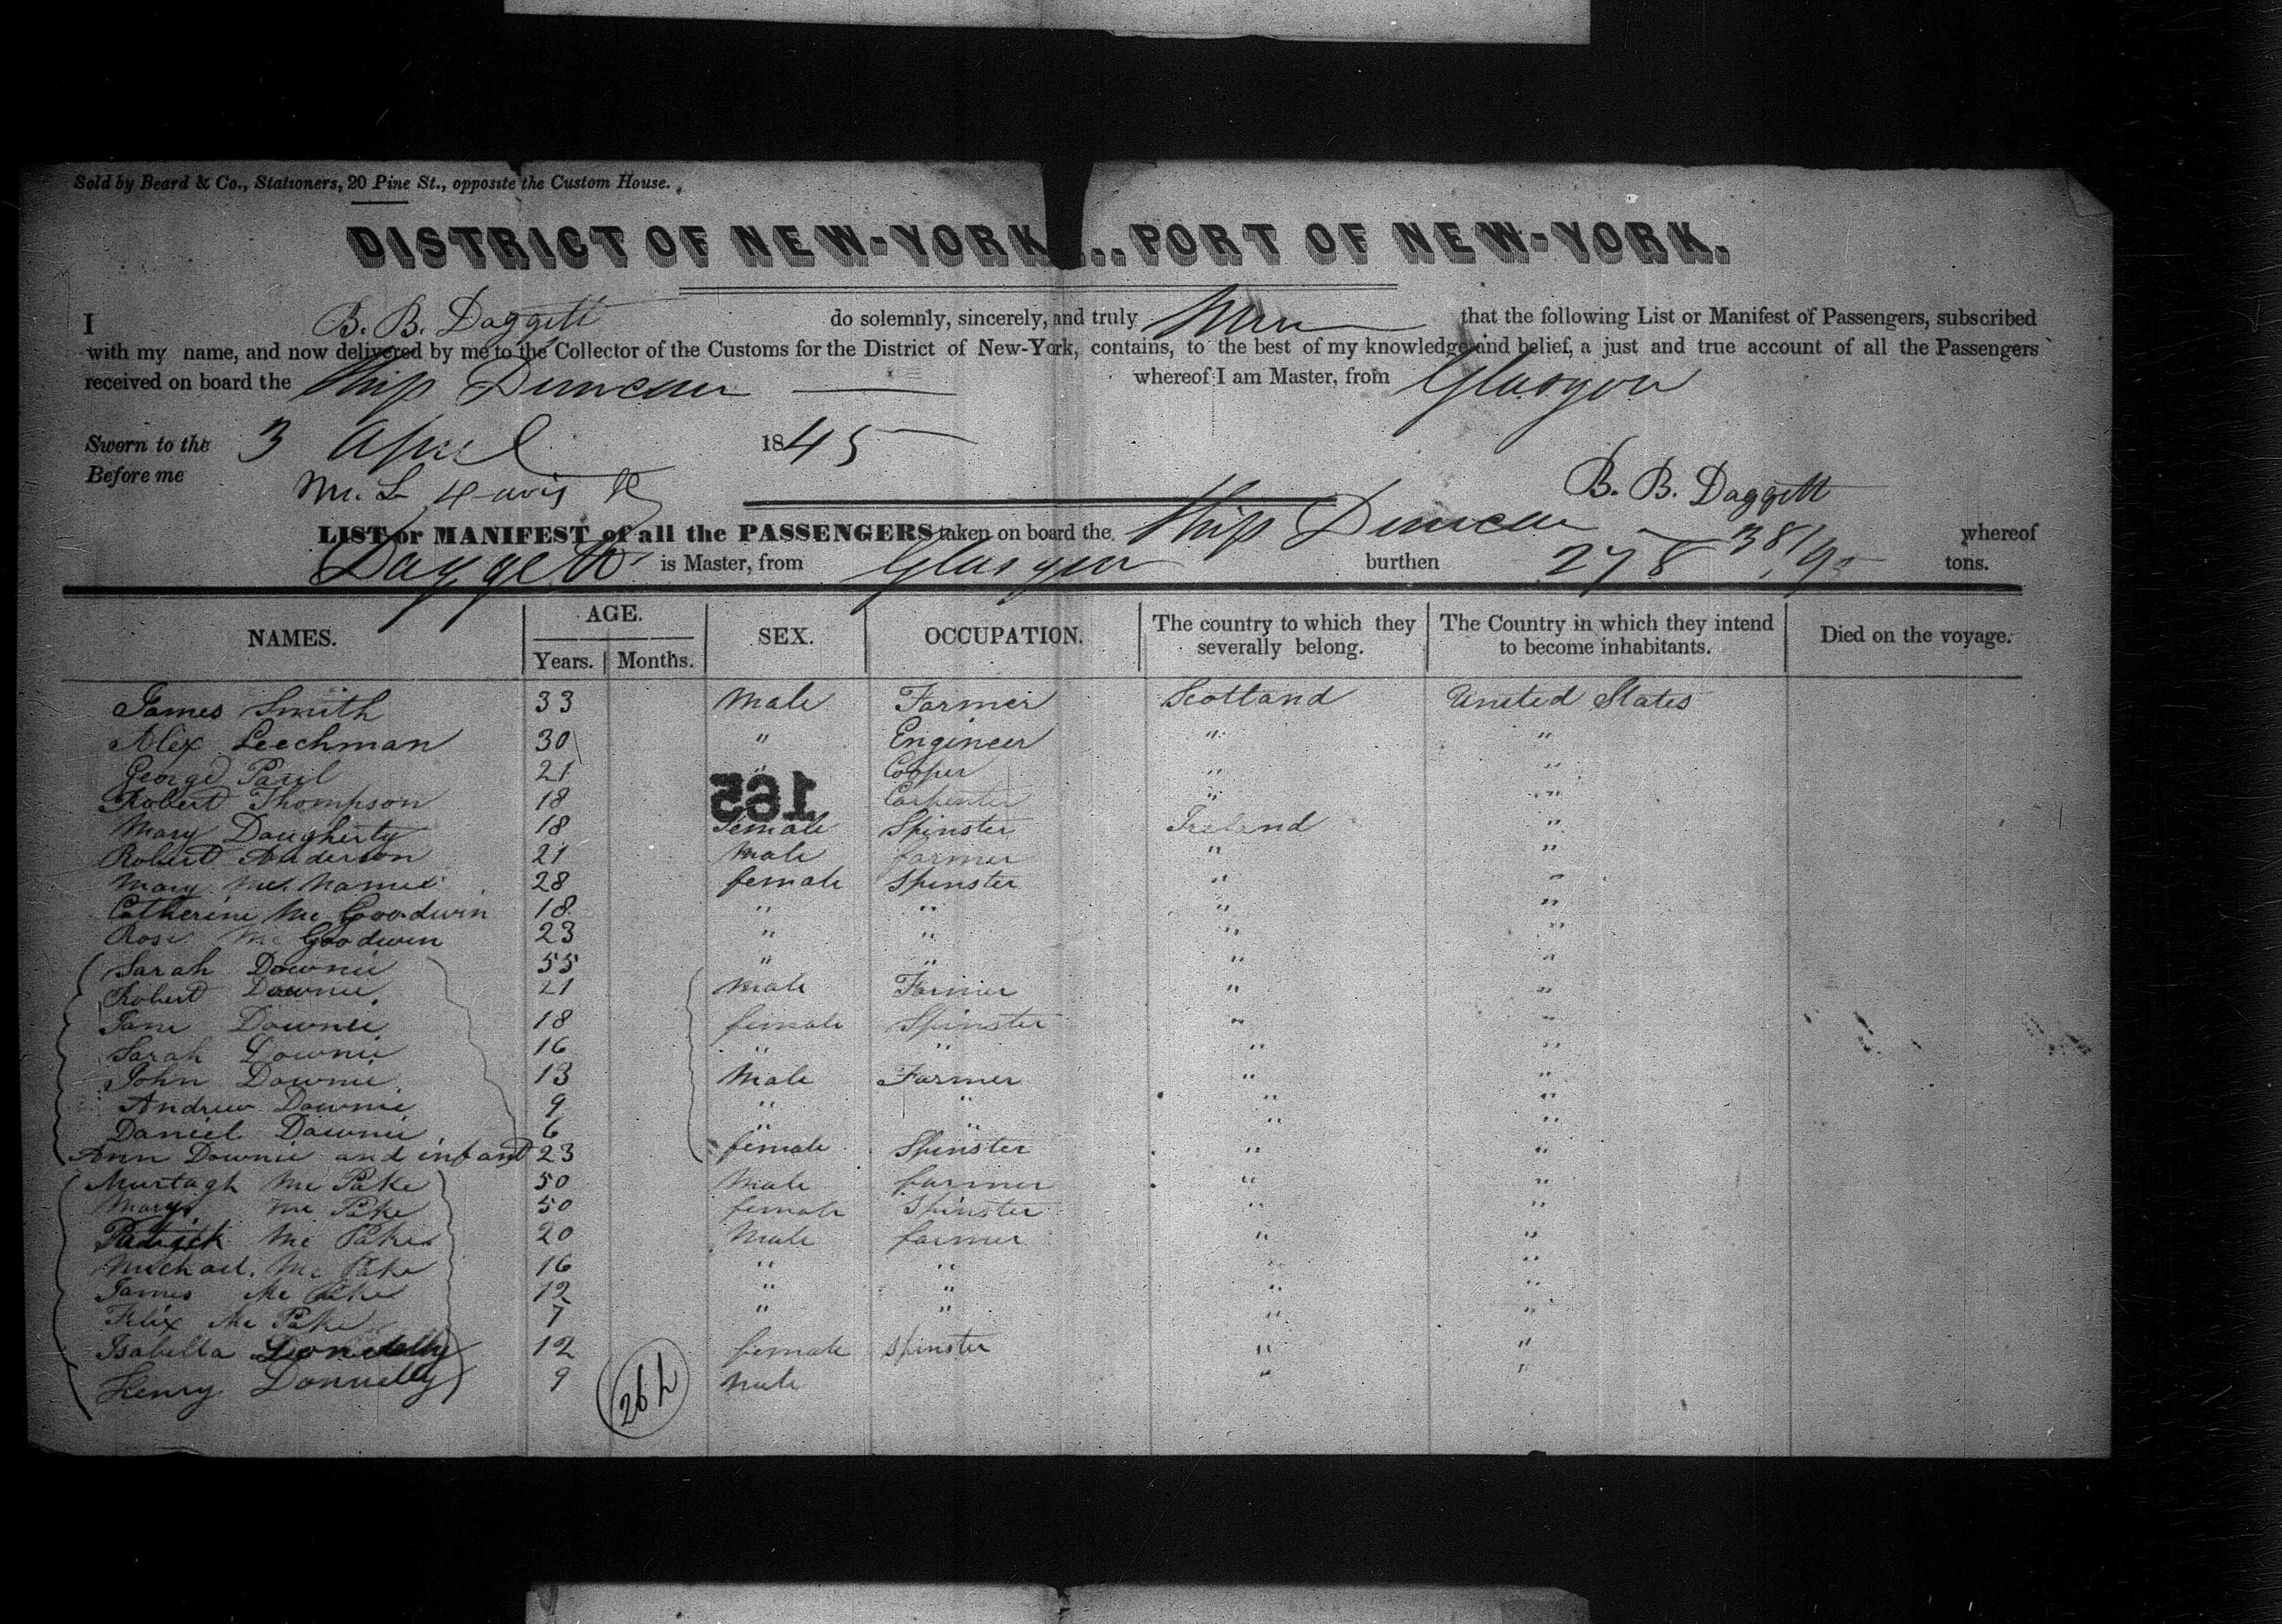 Sold by Beard & Co., Stationers, 20 Pine St., opposite the Custom House.
DISTRICT OF NEW-YORK...PORT OF NEW-YORK.
I B. B. Daggett do solemnly, sincerely, and truly that the following List or Manifest of Passengers, subscribed
with my name, and now delivered by me to the Collector of the Customs for the District of New-York, contains, to the best of my knowledge and belief, a just and true account of all the Passengers
received on board the Ship Duncan whereof I am Master, from Glasgow
Sworn to the 3 April 1845
Before me
B. B. Daggett
LIST or MANIFEST of all the PASSENGERS taken on board the Ship Duncan whereof
Daggett is Master, from Glasgow burthen 278 38/95 tons.
NAMES. AGE. Years. Months. SEX. OCCUPATION. The country to which they severally belong. The Country in which they intend to become inhabitants. Died on the voyage.
James Smith 33 Male Farmer Scotland United States
Alex Leechman 30 " Engineer " "
George Paul 21 " Cooper " "
Robert Thompson 18 Carpenter " "
165
Mary Daugherty 18 Female Spinster Ireland "
Robert Anderson 21 Male farmer " "
Mary Mc Namee 28 female Spinster " "
Catherine Mc Goodwin 18 " " " "
Rose Mc Goodwin 23 " " " "
Sarah Downie 55 " " " "
Robert Downie 21 Male Farmer " "
Jane Downie 18 female Spinster " "
Sarah Downie 16 " " " "
John Downie 13 Male Farmer " "
Andrew Downie 9 " " " "
Daniel Downie 6 " " " "
Ann Downie and infant 23 female Spinster " "
Murtagh Mc Pake 50 Male farmer " "
Mary Mc Pake 50 female Spinster " "
Patrick Mc Pake 20 Male farmer " "
Michael Mc Pake 16 " " " "
James Mc Pake 12 " " " "
Felix Mc Pake 7 " " " "
Isabella Donnelly 12 female spinster " "
Henry Donnelly 9 male " "